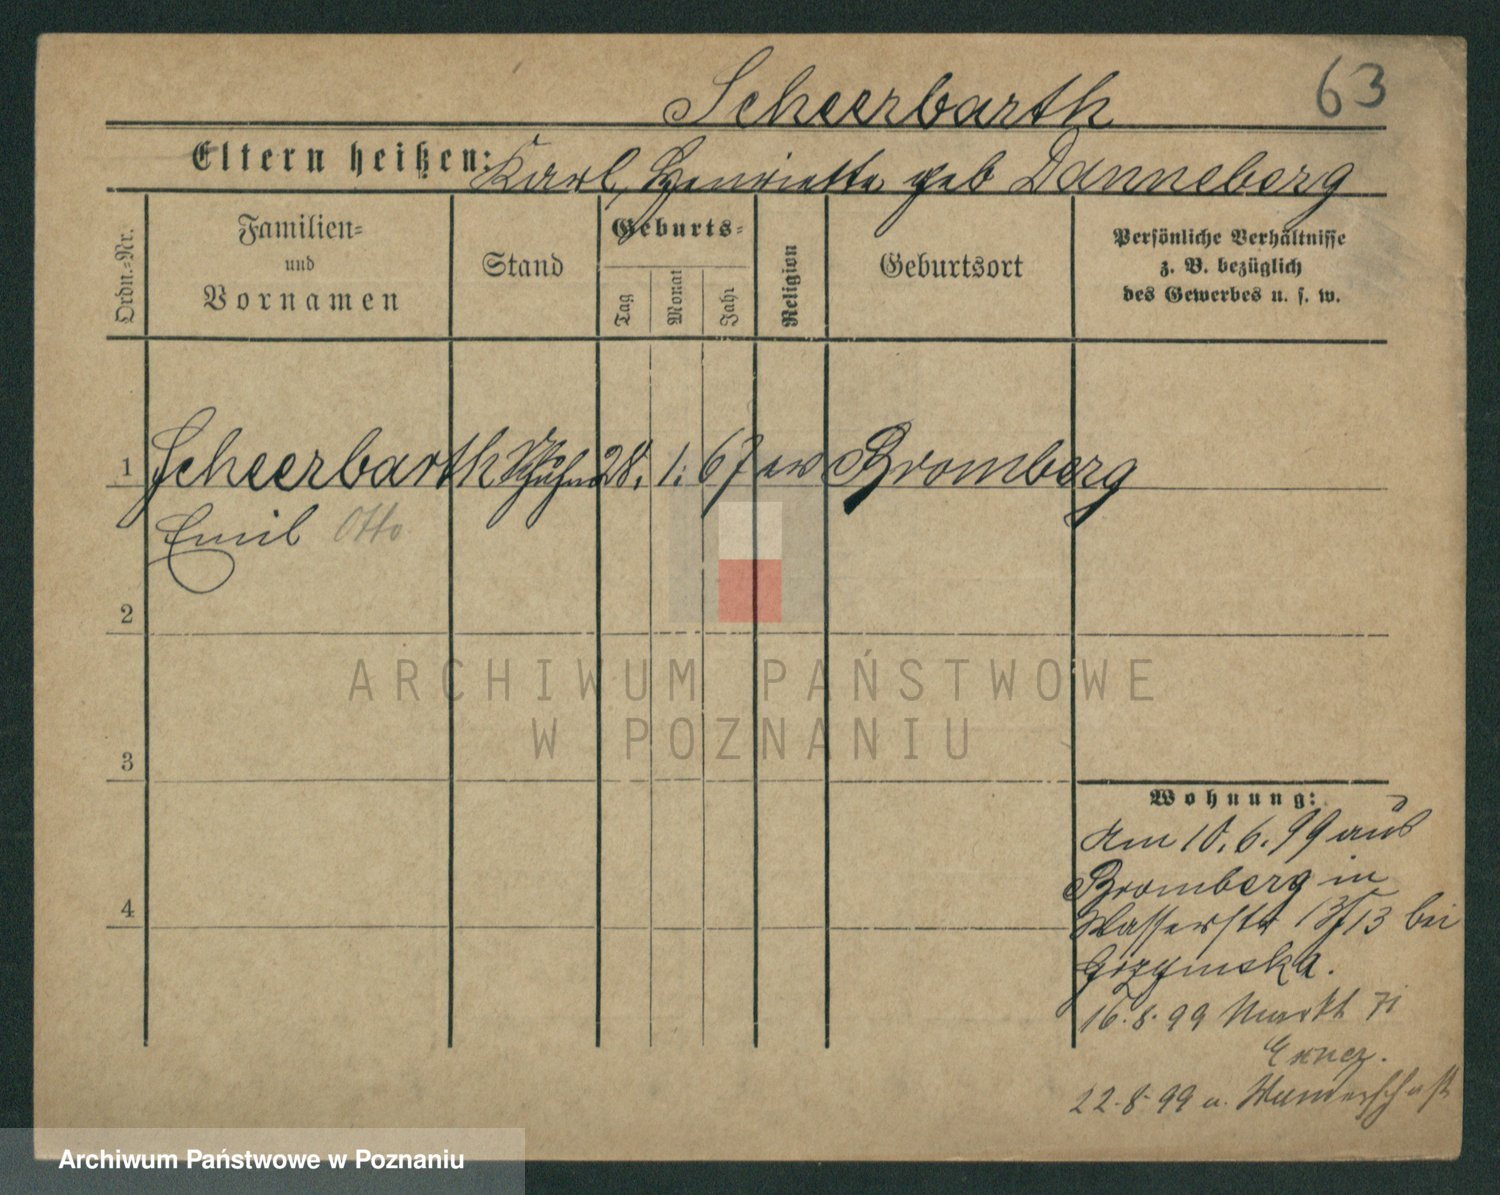 63
Scheerbarth
Eltern heißen: Karl, Henriette geb Danneberg
Ordn.-Nr.
Familien-
und
Vornamen
Stand
Geburts-
Tag
Monat
Jahr
Religion
Geburtsort
Persönliche Verhältnisse
z. B. bezüglich
des Gewerbes u. s. w.
1 Scheerbarth 28. 1. 67 ev Bromberg
Emil Otto
2
3
4
Wohnung:
Am 10. 6. 99 aus
Bromberg in
Wasserstr 13 bei
16. 8. 99 Markt 71
22. 8. 99 a. Wanderschaft
ARCHIWUM PAŃSTWOWE
W POZNANIU
Archiwum Państwowe w Poznaniu